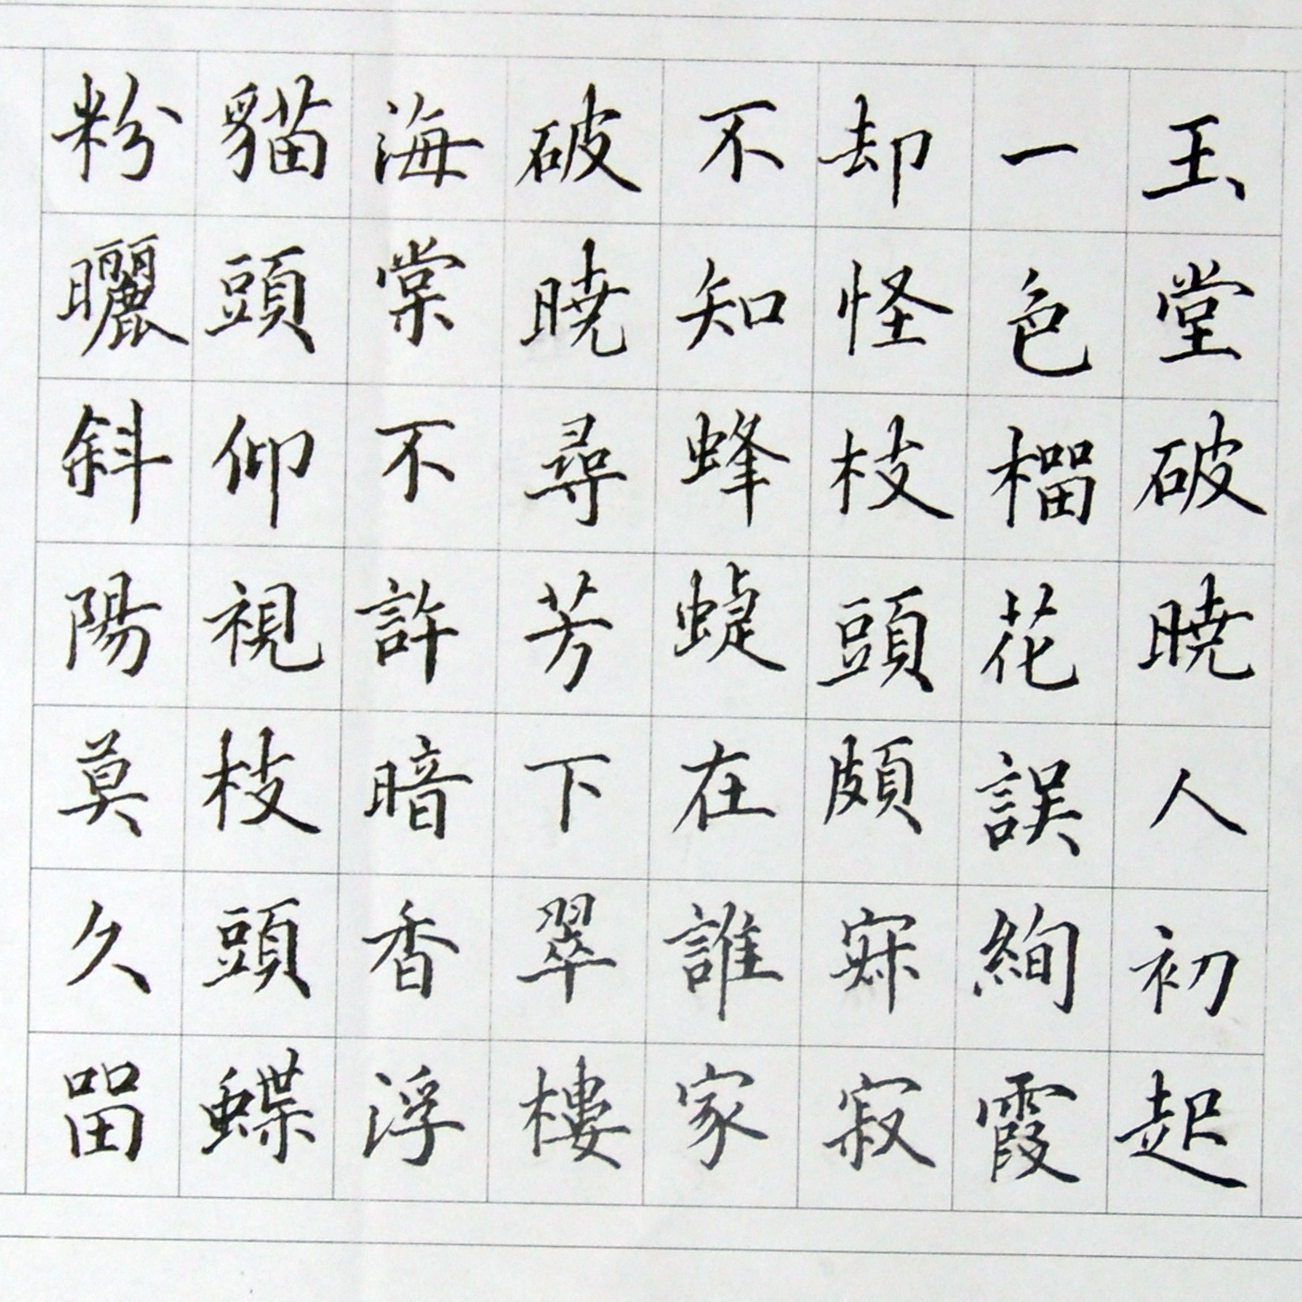 玉堂破暁人初起
一色榴花誤絢霞
却怪枝頭頗寂寂
不知蜂蜨在誰家
破暁尋芳下翠樓
海棠不許暗香浮
貓頭仰視枝頭蝶
粉曬斜陽莫久畱